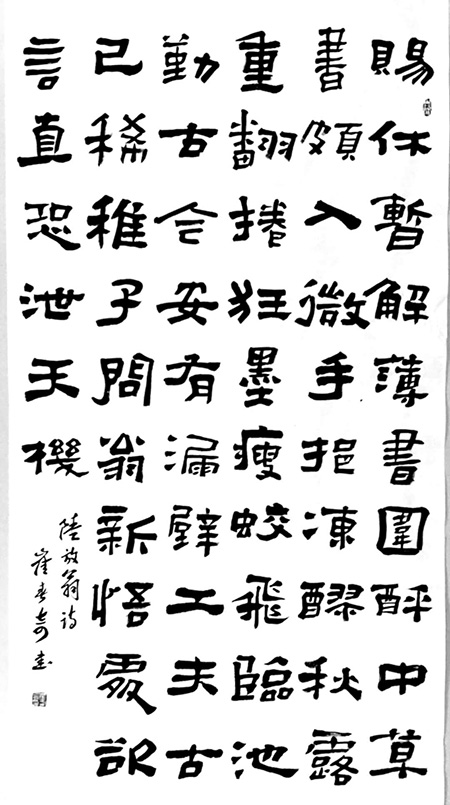 賜休暫解薄書圍酔中草
書頗入微手挹凍醪秋露
重翻捲狂墨瘦蛟飛臨池
勤古今安有漏壁工夫古
已稀稚子問翁新悟處欲
言直恐泄天機
陸放翁詩
崔